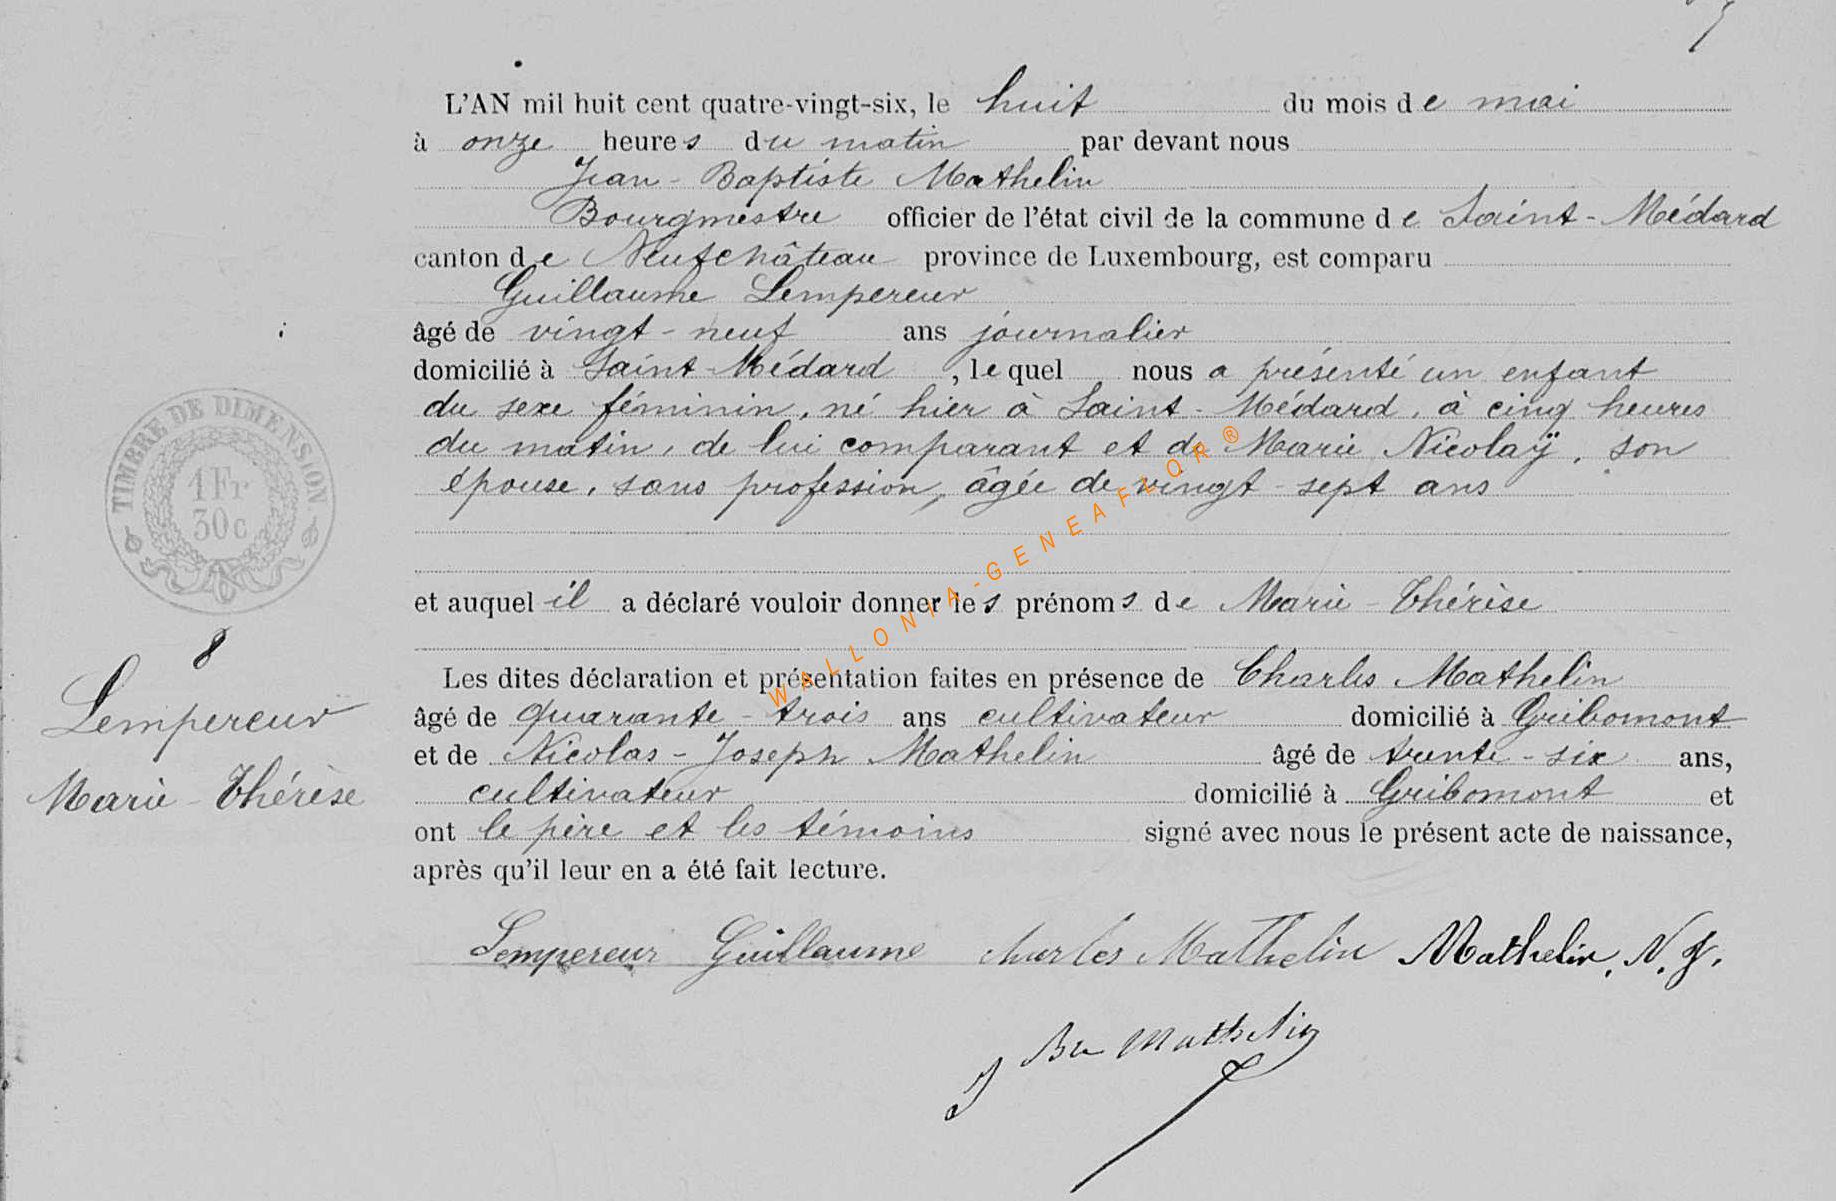 L'AN mil huit cent quatre-vingt-six, le huit du mois de mai
à onze heures du matin par devant nous
Jean-Baptiste Mathelin
Bourgmestre officier de l'état civil de la commune de Saint-Médard
canton de Neufchâteau province de Luxembourg, est comparu
Guillaume Lempereur
âgé de vingt-neuf ans journalier
domicilié à Saint-Médard, lequel nous a présenté un enfant
du sexe féminin, né hier à Saint-Médard, à cinq heures
du matin, de lui comparant et de Marie Nicolaÿ, son
épouse, sans profession, âgée de vingt-sept ans
et auquel il a déclaré vouloir donner les prénoms de Marie-Thérèse
Les dites déclaration et présentation faites en présence de Charles Mathelin
âgé de quarante-trois ans cultivateur domicilié à Gribomont
et de Nicolas-Joseph Mathelin âgé de trente-six ans,
cultivateur domicilié à Gribomont et
ont le père et les témoins signé avec nous le présent acte de naissance,
après qu'il leur en a été fait lecture.
Lempereur Guillaume Charles Mathelin Mathelin, N. J.
J Bte Mathelin
TIMBRE DE DIMENSION
1 Fr
30 c
8
Lempereur
Marie-Thérèse
WALLONIA-GENEAFLOR ®